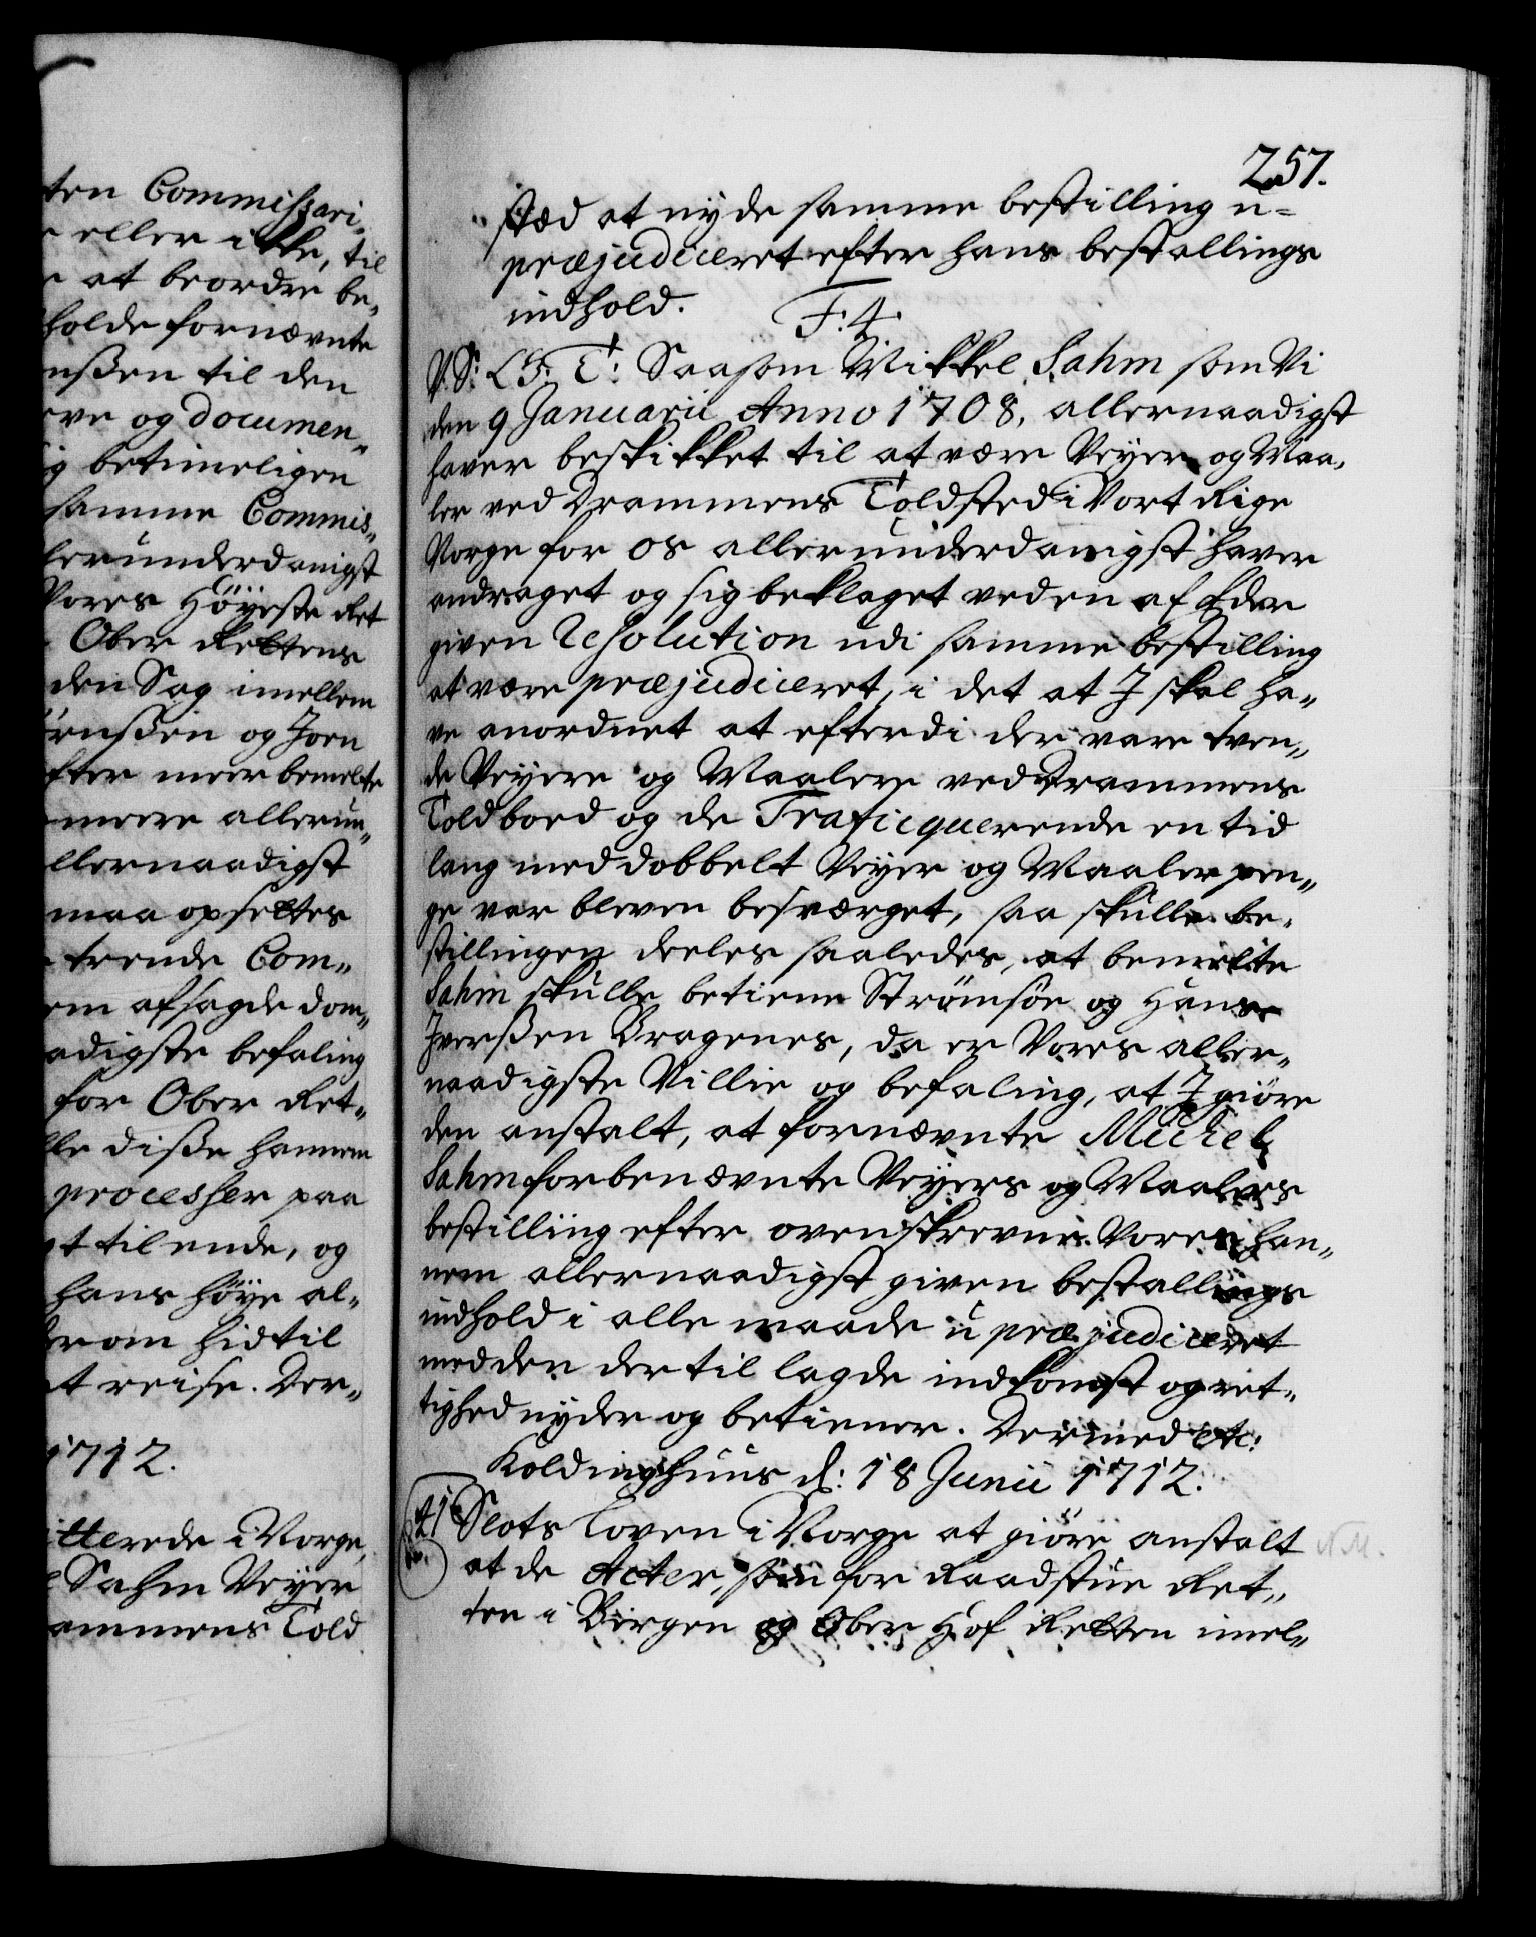 ten Commissari-
eller ikke, til
at beordre be-
holde fornævnte
nßen til den
ve og documen-
ig betimeligen
samme Commis-
lerunderdanigst
Vores Höyeste Ret
Ober Rettens
den Sag imellem
enßen og Joen
fter meerbemelte
meere allerun-
llernaadigst
maa opsettes
trende Com-
em afsagde dom-
adigste befaling
for Ober Ret-
lle diße hannem
processer paa
gt til ende, og
hans höye al-
erom hidtil
t reise. Der-
1712.
itterede i Norge,
Sahm Veyer
ammens Told
257.
stæd at nyde samme bestilling u-
præjudiceret efter hans bestallings
indhold. F. 4.
V. S. C F. T: Saasom Mikkel Sahm som Vi
den 9 Januarii Anno 1708, allernaadigst
haver beskikket til at være Veyer og Maa-
ler ved Drammens Toldsted i Vort Rige
Norge for os allerunderdanigst haver
andraget og sig beklaget ved en af Eder
given Resolution udi samme bestilling
at være præjudiceret, i det at J skal ha-
ve anordnet at efterdi der vare tven-
de Veyere og Maalere ved Drammens
Toldboed og de Traficquerende en tid
lang med dobbelt Veyer og Maaler pen-
ge var bleven besværget, saa skulle be-
stillingen deeles saaledes, at bemelte
Sahm skulle betiene Strömsöe og Hans
Iverßen Bragenes, da er Vores aller-
naadigste Villie og befaling, at J giöre
den anstalt, at fornævnte Michel
Sahm forbenævnte Veyers og Maalers
bestilling efter ovenskrevne Vores han-
nem allernaadigst given bestallings
indhold i alle maade u præjudiceret
med den dertil lagde indkomst og ret-
tighed nyder og betiener. Dermed etc:
Koldinghuus d: 18 Junii 1712.
41 Slots Loven i Norge at giöre anstalt N.M.
at de Acter, som for Raadstue Ret-
ten i Bergen og Ober Hof Retten imel-